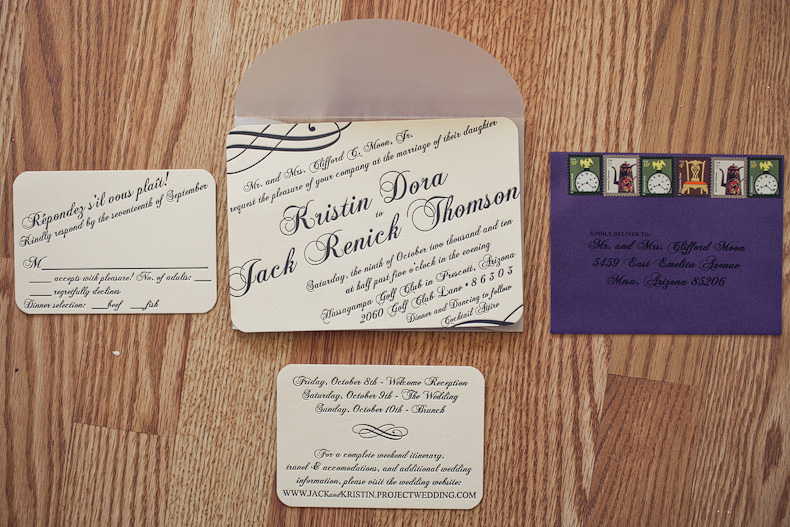 Répondez s'il vous plaît!
Kindly respond by the seventeenth of September
M
accepts with pleasure! No. of adults: __
__ regretfully declines
Dinner selection: __beef __fish
Mr. and Mrs. Clifford C. Moon, Jr.
request the pleasure of your company at the marriage of their daughter
Kristin Dora
to
Jack Renick Thomson
Saturday, the ninth of October two thousand and ten
at half past five o'clock in the evening
Hassayampa Golf Club in Prescott, Arizona
2060 Golf Club Lane • 86303
Dinner and Dancing to follow
Cocktail Attire
KINDLY DELIVER TO:
Mr. and Mrs. Clifford Moon
5459 East Emelita Avenue
Mesa, Arizona 85206
Friday, October 8th - Welcome Reception
Saturday, October 9th - The Wedding
Sunday, October 10th - Brunch
For a complete weekend itinerary,
travel & accomodations, and additional wedding
information, please visit the wedding website:
WWW.JACKandKRISTIN.PROJECTWEDDING.COM